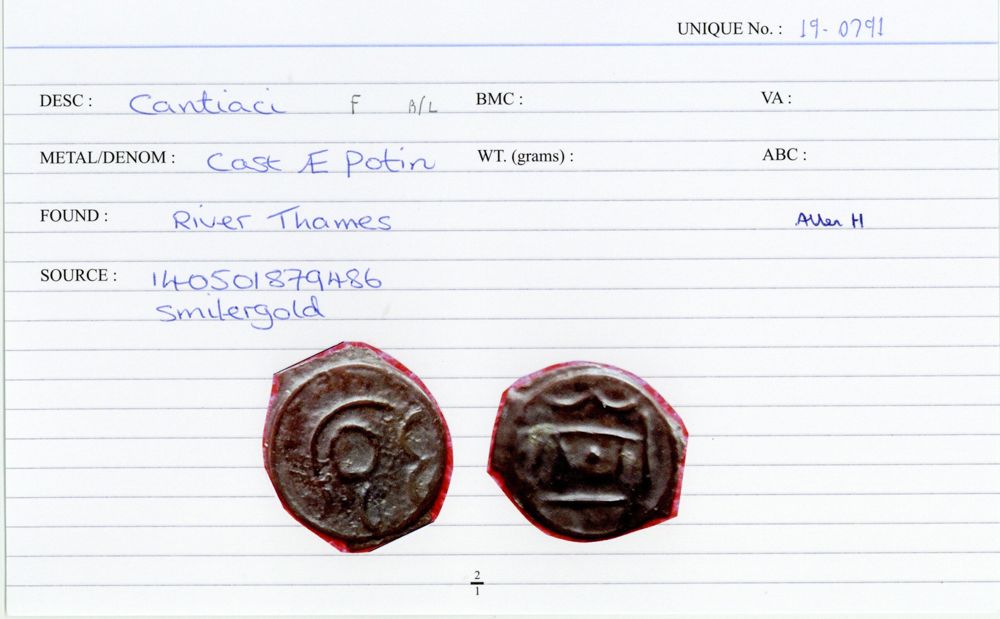 UNIQUE No. : 19-0791
DESC : Cantiaci F A/L BMC : VA :
METAL/DENOM : Cast Æ Potin WT. (grams) : ABC :
FOUND : River Thames Allen H
SOURCE : 140501879486
smilergold
2
1